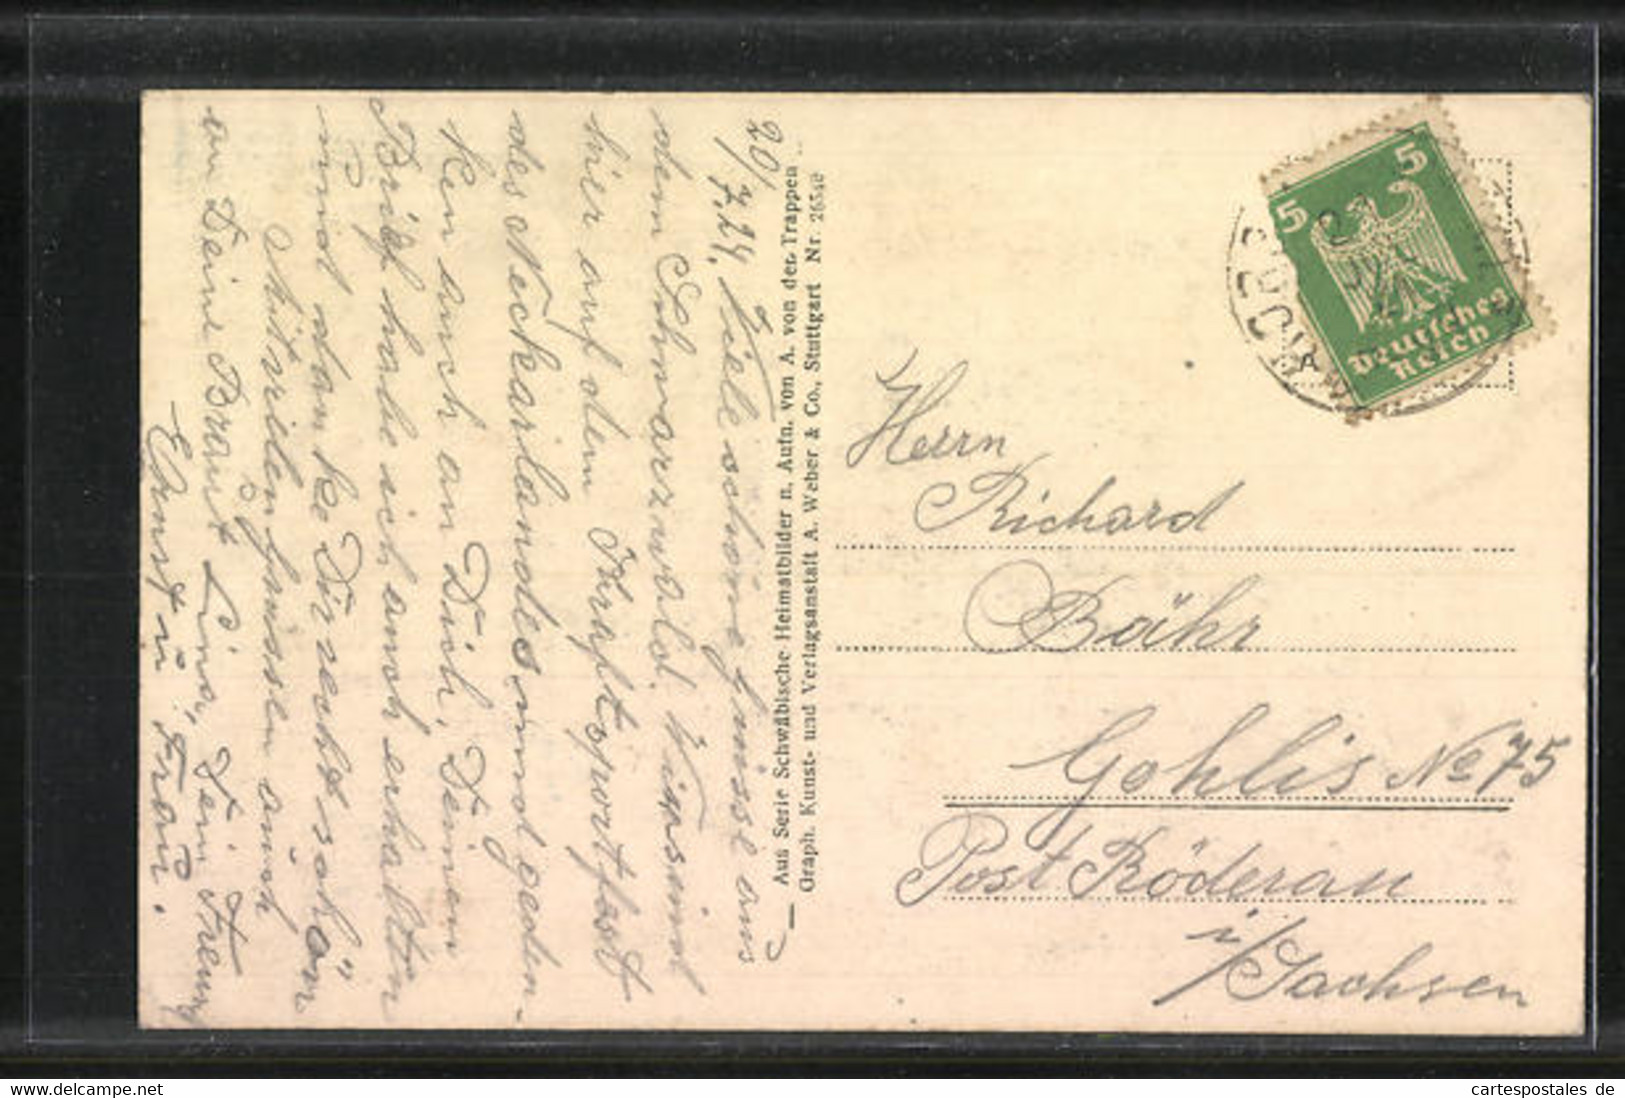 20/7.24. Viele schöne Grüsse aus
dem Schwarzwald. Wir sind
hier auf dem Kraftsportfest
des Neckarlandes und geden-
ken auch an Dich. Deinen
Brief habe ich auch erhalten
und danke Dir recht schön
Mit vielen Grüssen auch
an Deine Braut Lina, Dein Freund
Ernst u Frau.
Aus Serie Schwäbische Heimatbilder n. Aufn. von A. von der Trappen
Graph. Kunst- und Verlagsanstalt A. Weber & Co., Stuttgart Nr. 26548
5
5
Deutsches
Reich
Herrn
Richard
Bähr
Gohlis No 75
Post Röderau
i/Sachsen
www.delcampe.net
cartespostales de